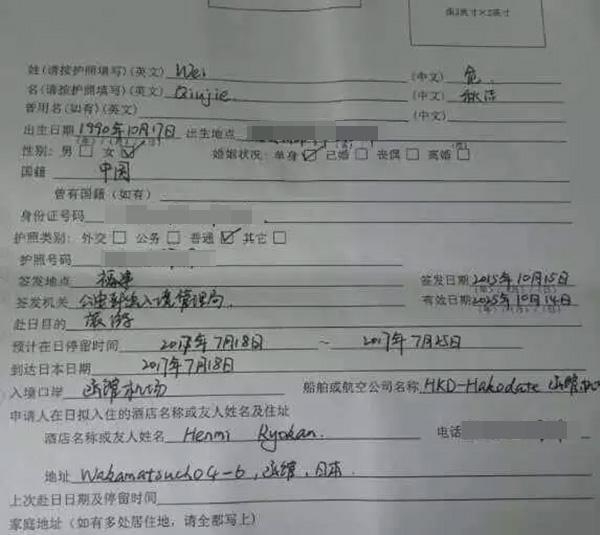 面2英寸×2英寸
姓(请按护照填写)(英文) Wei (中文) 危
名(请按护照填写)(英文) Qiujie (中文) 秋洁
曾用名(如有)(英文) (中文)
出生日期 1990年10月17日 出生地点
(年)/(月)/(日)
性别: 男□ 女☑ 婚姻状况: 单身☑ 已婚□ 丧偶□ 离婚□
国籍 中国
曾有国籍 (如有)
身份证号码
护照类别: 外交□ 公务□ 普通☑ 其它□
护照号码
签发地点 福建 签发日期 2015年10月15日
签发机关 公安部出入境管理局 有效日期 2025年10月14日
赴日目的 旅游
预计在日停留时间 2017年7月18日 ~ 2017年7月25日
到达日本日期 2017年7月18日
入境口岸 函馆机场 船舶或航空公司名称 HKD-Hakodate 函馆机
申请人在日拟入住的酒店名称或友人姓名及住址
酒店名称或友人姓名 Henmi Ryokan. 电话
地址 Wakamatsucho4-6, 函馆, 日本.
上次赴日日期及停留时间
家庭地址 (如有多处居住地, 请全部写上)